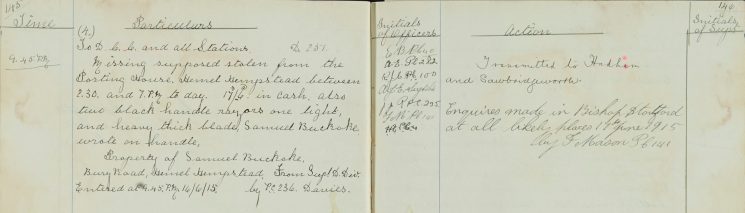 145
Time
Particulars
(4.)
To D.C.C. and all Stations. D 257.
9.45 P.M.
Missing supposed stolen from the
Posting House, Hemel Hempstead between
2.30. and 7. P.M. to day. 17/6 in cash, also
two black handle razors one light,
and heavy thick blade, Samuel Buckoke
wrote on handle,
Property of Samuel Buckoke,
Bury Road, Hemel Hempstead, From Supt D. Div.
Entered at 9.45. P.M. 14/6/15. by P.C. 236. Davies.
Initials
of Officers
146
Action
Initials
of Supt
Transmitted to Hadham
and Sawbridgeworth.
Enquires made in Bishop Stortford
at all likely places 15th June 1915
F. Mason